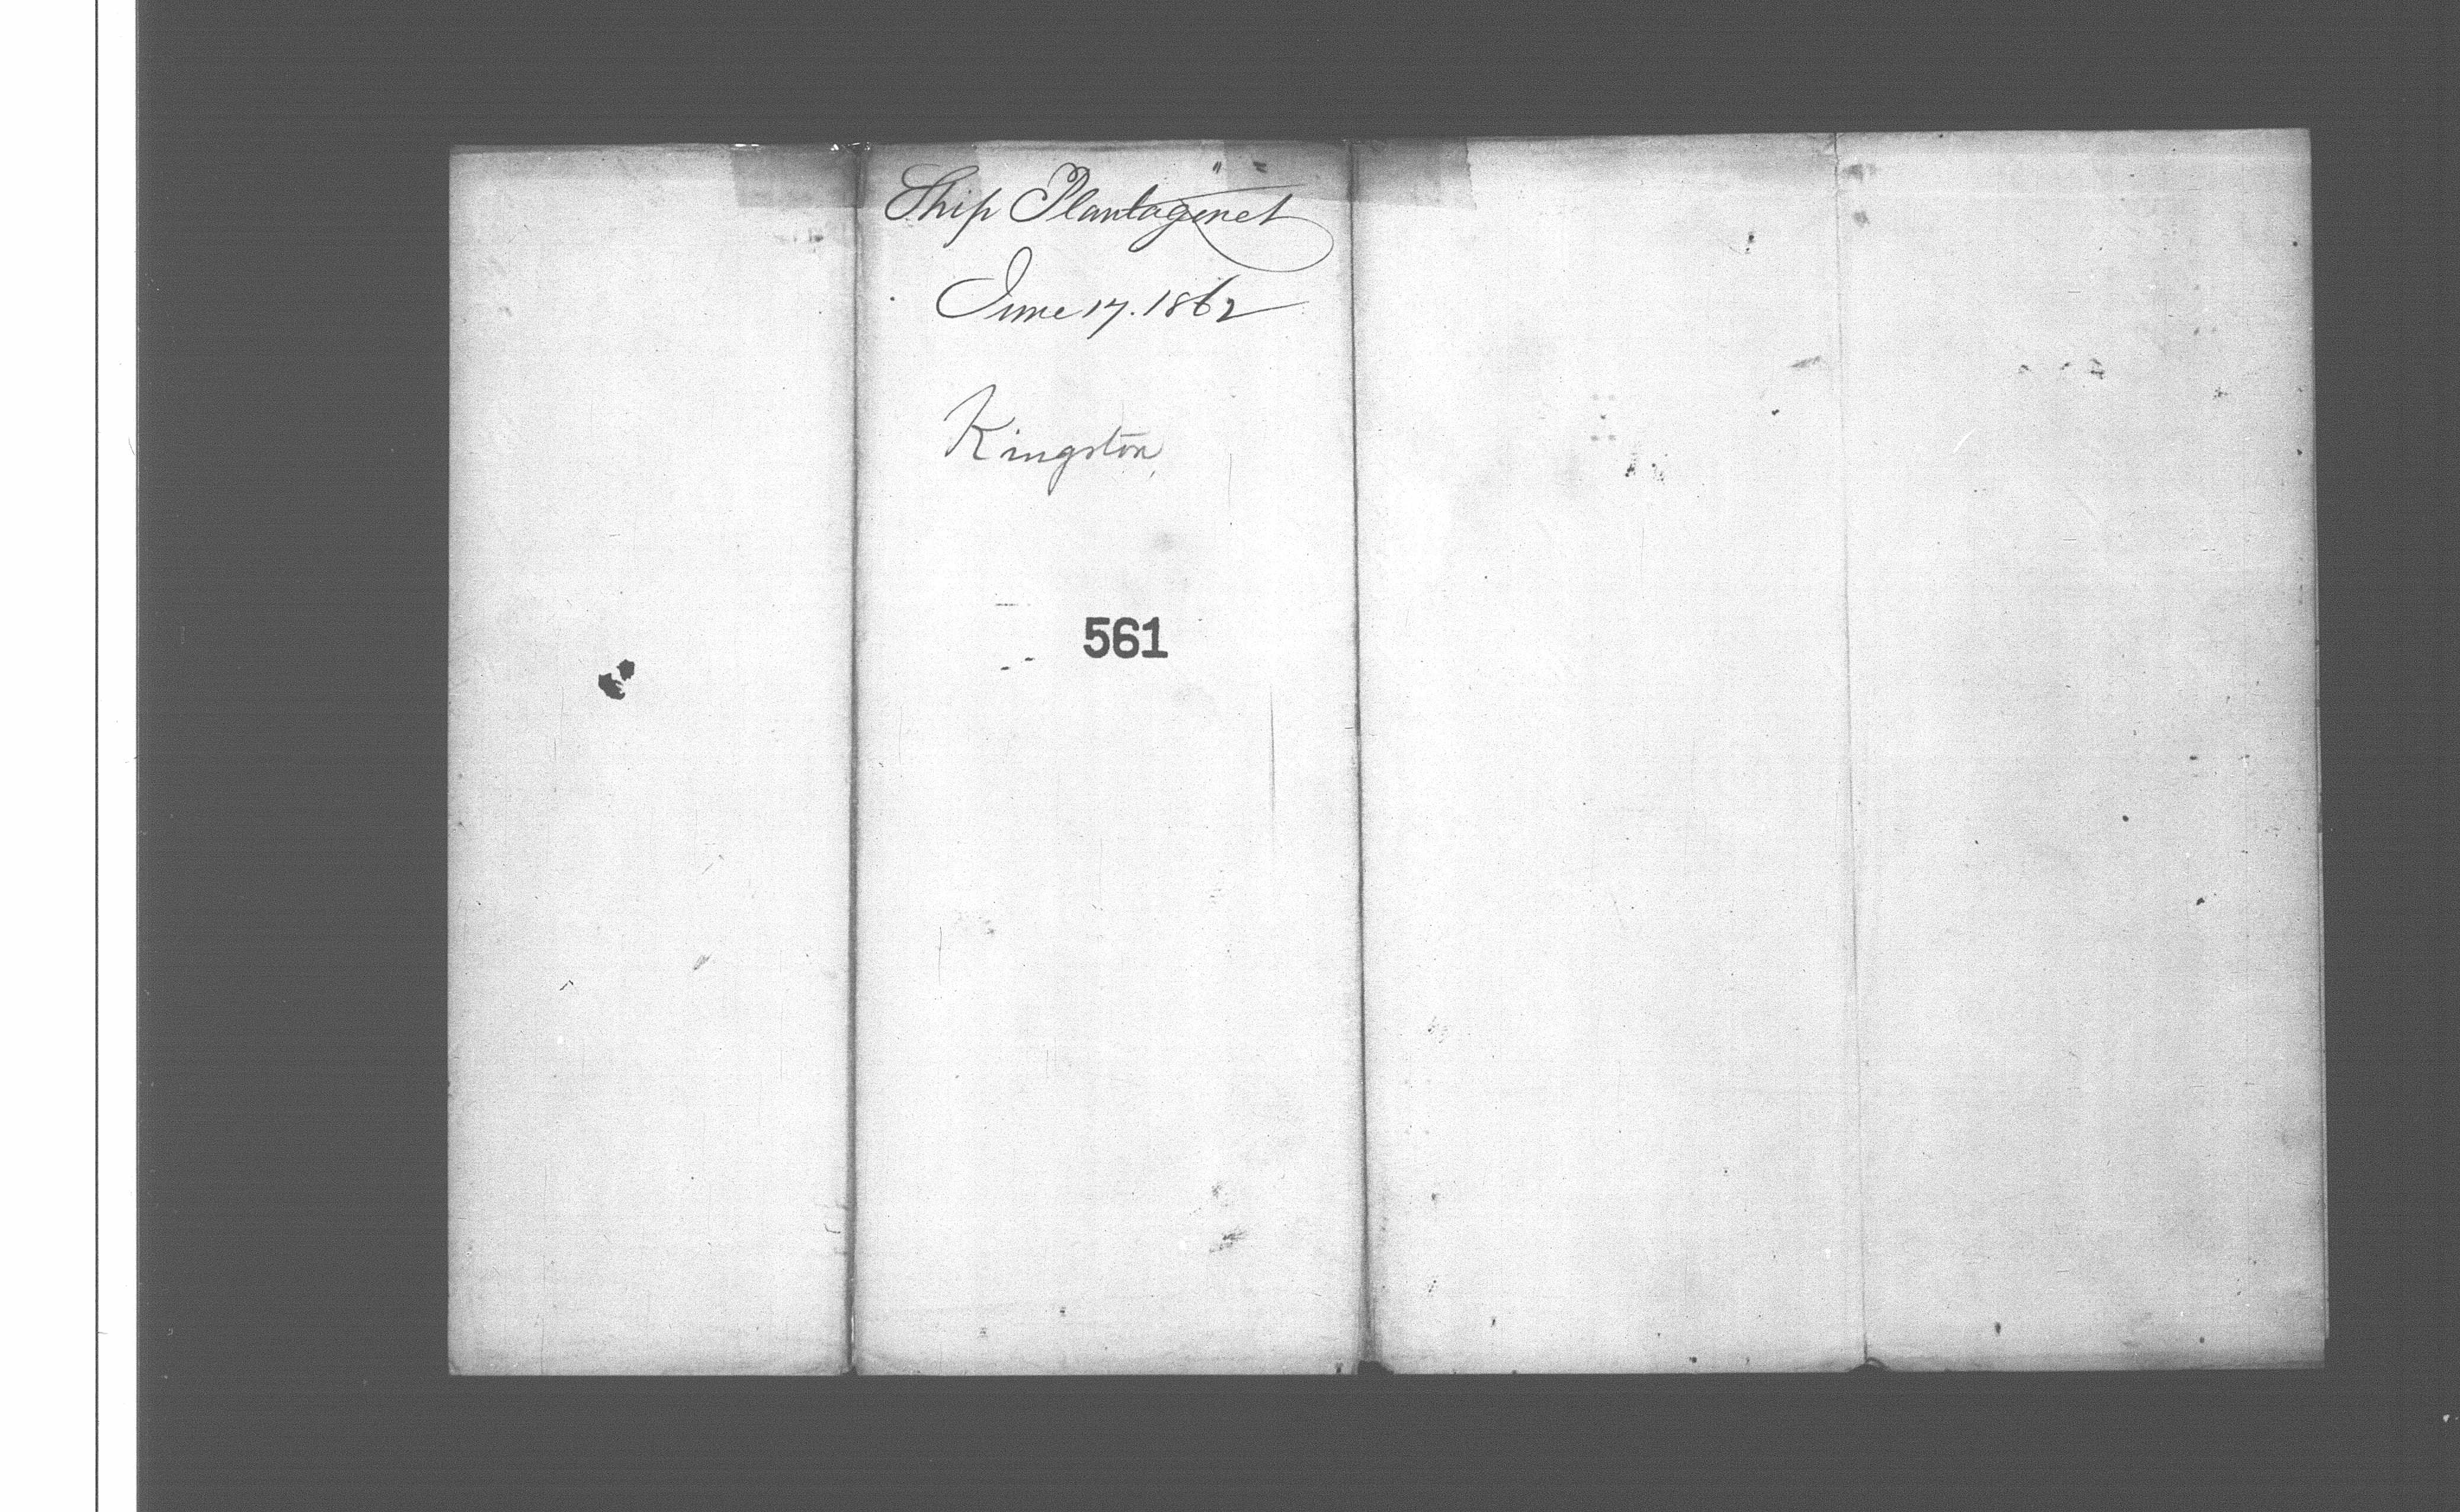 Ship Plantagenet
June 17. 1862
Kingston
561